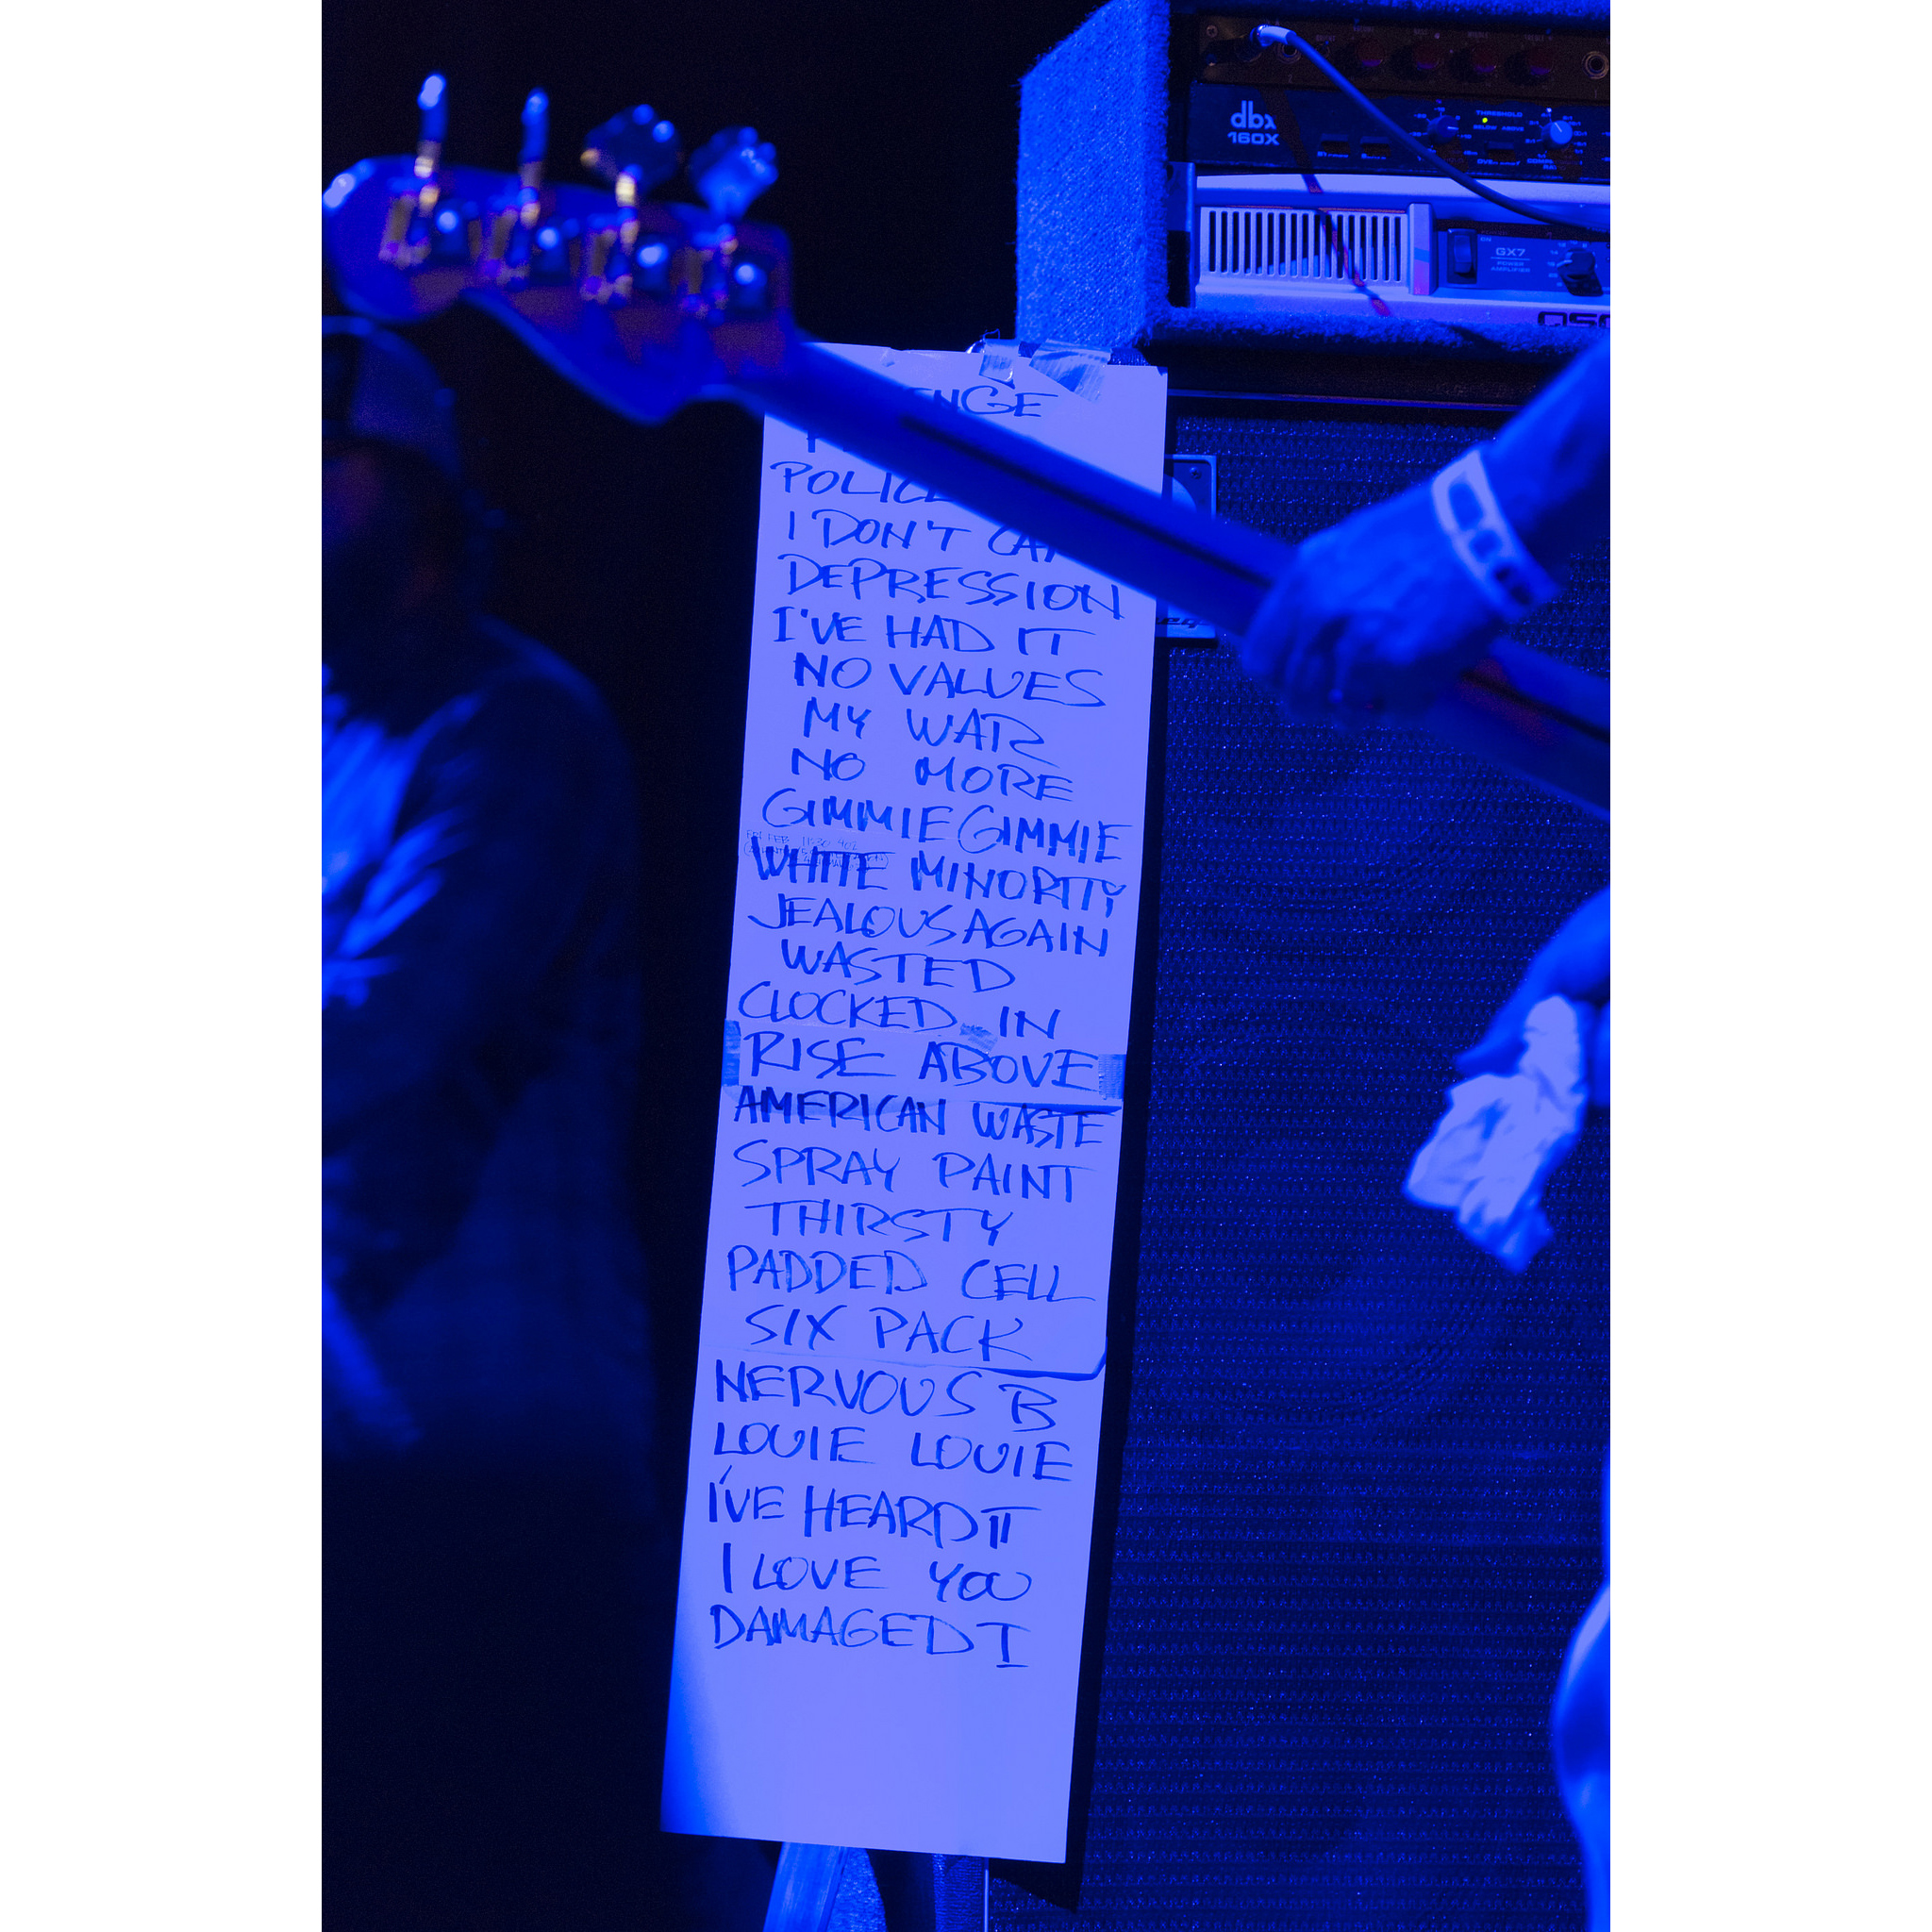 dbx
160X
THRESHOLD
BELOW ABOVE
GX7
POWER
AMPLIFIER
QSC
NGE
POLICE
I DON'T CA
DEPRESSION
I'VE HAD IT
NO VALUES
MY WAR
NO MORE
GIMMIE GIMMIE
WHITE MINORITY
JEALOUS AGAIN
WASTED
CLOCKED IN
RISE ABOVE
AMERICAN WASTE
SPRAY PAINT
THIRSTY
PADDED CELL
SIX PACK
NERVOUS B
LOUIE LOUIE
I'VE HEARD IT
I LOVE YOU
DAMAGED I